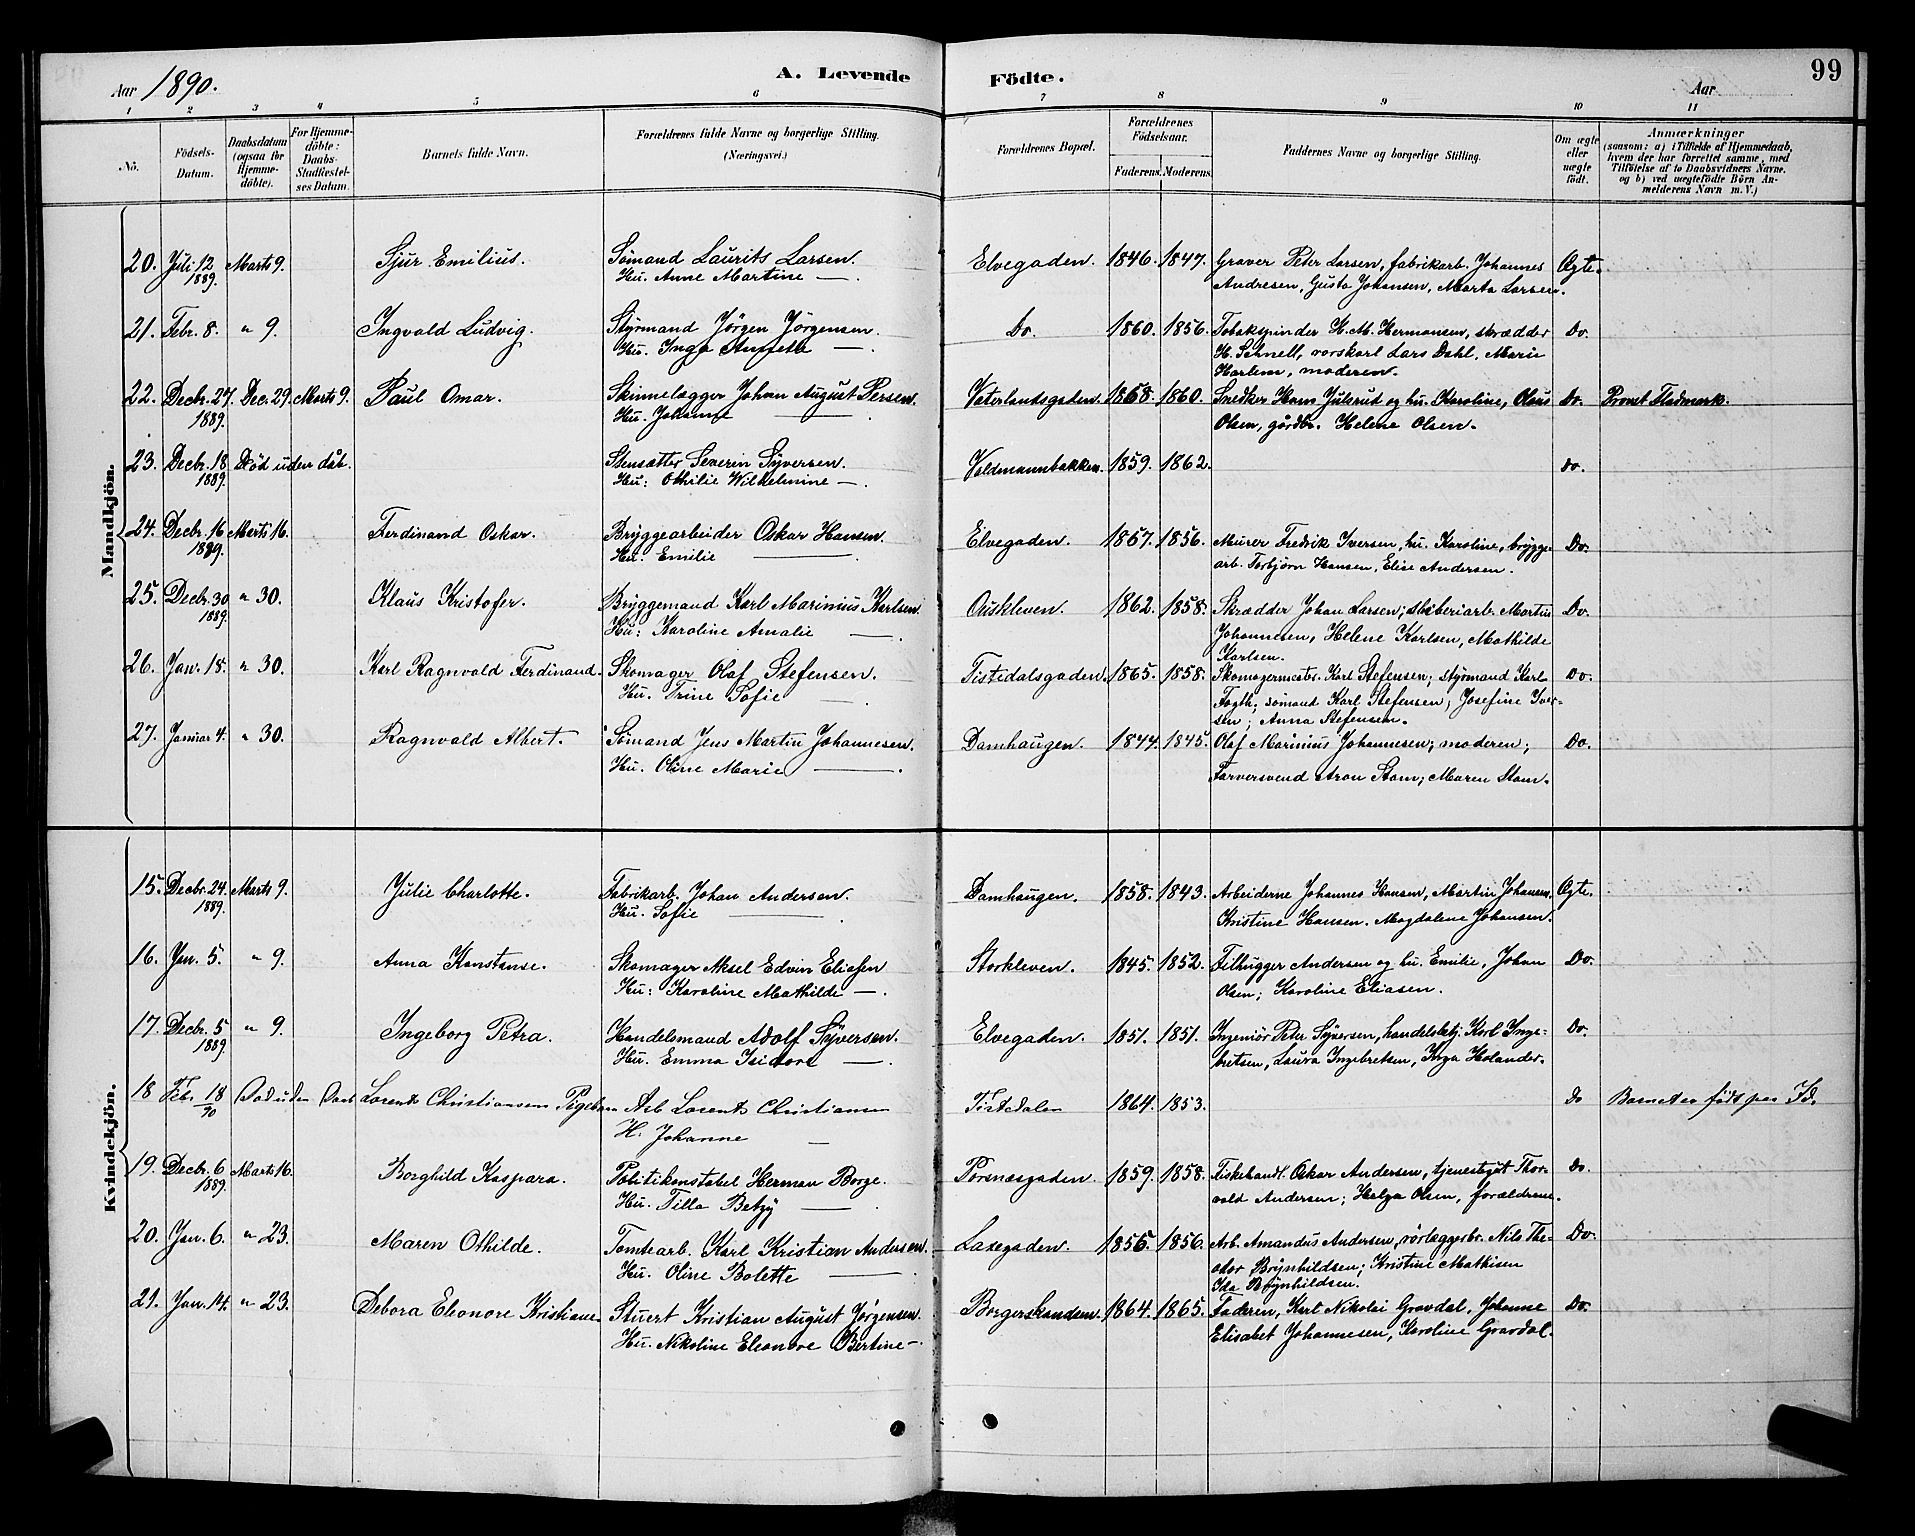 Aar 1890.
A. Levende Födte.
Aar
99
1 2 3 4 5 6 7 8 9 10 11
No.
Födsels-Datum.
Daabsdatum (ogsaa för Hjemmedöbte).
For Hjemmedöbte: Daabs-Stadfæstelses Datum.
Barnets fulde Navn.
Forældrenes fulde Navne og borgerlige Stilling. (Næringsvei.)
Forældrenes Bopæl.
Forældrenes Födselsaar.
Faderens. Moderens.
Faddernes Navne og borgerlige Stilling.
Om ægte eller uægte födt.
Anmærkninger (saasom: a) i Tilfælde af Hjemmedaab, hvem der har forrettet samme, med Tilföielse af to Daabsvidners Navne. og b) ved uægtefödte Börn Anmelderens Navn m. V.)
Mandkjön.
20. Juli 12 1889. Marts 9. Sjur Emilius. Sömand Laurits Larsen. Elvegaden. 1846. 1847. Graver Peter Larsen, fabrikarb. Johannes Ægte.
Hu. Anne Martine — Andresen, Gusta Johansen, Marta Larsen.
21. Febr. 8. " 9. Ingvald Ludvig. Styrmand Jörgen Jörgensen. Do. 1860. 1856. Tobakspinder H. M. Hermansen, skrædder Do.
Hu. Inga Annette — H. Schnell, vorskarl Lars Dahl, Marie
Harlem, moderen.
22. Decbr. 27. 1889. Dec. 29. Marts 9. Paul Omar. Skinnelægger Johan August Persen. Veterlandsgaden. 1868. 1860. Snedker Hans Julsrud og hu. Karoline, Olaus Do. Provst Fladmark.
Hu. Johanne — Olsen, gårdbr. Helene Olsen.
23. Decbr. 18 1889. Död uden dåb. Stensætter Severin Syversen. Voldmannbakken. 1859. 1862. do.
Hu: Othilie Wilhelmine —.
24. Decbr. 16 1889. Marts 16. Ferdinand Oskar. Bryggearbeider Oskar Hansen. Elvegaden. 1867. 1856. Murer Fredrik Iversen, hu. Karoline, brygge- Do.
Hu. Emilie — arb. Torbjörn Hansen, Elise Andersen.
25. Decbr. 30 1889. " 30. Klaus Kristofer. Bryggemand Karl Marinius Karlsen. Ouskleven. 1862. 1858. Skrædder Johan Larsen; sliberiarb. Martin Do.
Hu: Karoline Amalie —. Johannesen, Helene Karlsen, Mathilde
Karlsen.
26. Jan. 18. " 30. Karl Ragnvald Ferdinand. Skomager Olaf Stefensen. Tistedalsgaden. 1865. 1858. Skomagermestr. Karl Stefensen; styrmand Karl Do.
Hu. Trine Sofie — Fogth; sömand Karl Stefensen, Josefine Iver-
sen; Anna Stefensen.
27. Januar 4. " 30. Ragnvald Albert. Sömand Jens Martin Johannesen. Damhaugen. 1844. 1845. Olaf Marinius Johannesen; moderen; Do.
Hu. Oline Marie —. Farversvend Aron Stam; Maren Stam.
Kvindekjön.
15. Decbr. 24. 1889. Marts 9. Julie Charlotte. Fabrikarb. Johan Andersen. Damhaugen. 1858. 1843. Arbeiderne Johannes Hansen, Martin Johansen. Ægte.
Hu. Sofie — Kristine Hansen. Magdalene Johansen.
16. Jan. 5. " 9. Anna Konstanse. Skomager Aksel Edvin Eliasen Storkleven. 1845. 1852. Filhugger Andersen og hu. Emilie, Johan Do.
Hu: Karoline Mathilde —. Olsen; Karoline Eliasen.
17. Decbr. 5 1889. " 9. Ingeborg Petra. Handelsmand Adolf Syversen. Elvegaden. 1851. 1851. Ingeniör Peter Syversen, handelsbetj. Karl Inge- Do.
Hu. Emma Isidore — bretsen, Laura Ingebretsen, Inga Holander.
18 Feb. 18 90 Död uden Daab Lorents Christiansens Pigebarn Arb Lorents Christiansen Tistedalen 1864. 1853. Do Barnet er födt paa Id.
H. Johanne —
19. Decbr. 6 1889. Marts 16. Borghild Kaspara. Politikonstabel Herman Borge. Porsnæsgaden. 1859. 1858. Fiskehandl. Oskar Andersen, tjenestegut Thor- Do.
Hu. Tilla Betzy — vald Andersen; Helga Olsen, forældrene.
20. Jan. 6. " 23. Maren Othilde. Tomtearb. Karl Kristian Andersen. Laxegaden. 1855. 1856. Arb. Amandus Andersen, rörlæggerbr. Nils The- Do.
Hu. Oline Bolette — odor Brynhildsen; Kristine Mathisen
Ida Brynhildsen.
21. Jan. 14. " 23. Debora Eleonore Kristiane. Stuert Kristian August Jörgensen. Borgerskandsen. 1864. 1865. Faderen, Karl Nikolai Gravdal, Johanne Do.
Hu. Nikoline Eleonore Bertine —. Elisabet Johannesen, Karoline Gravdal.